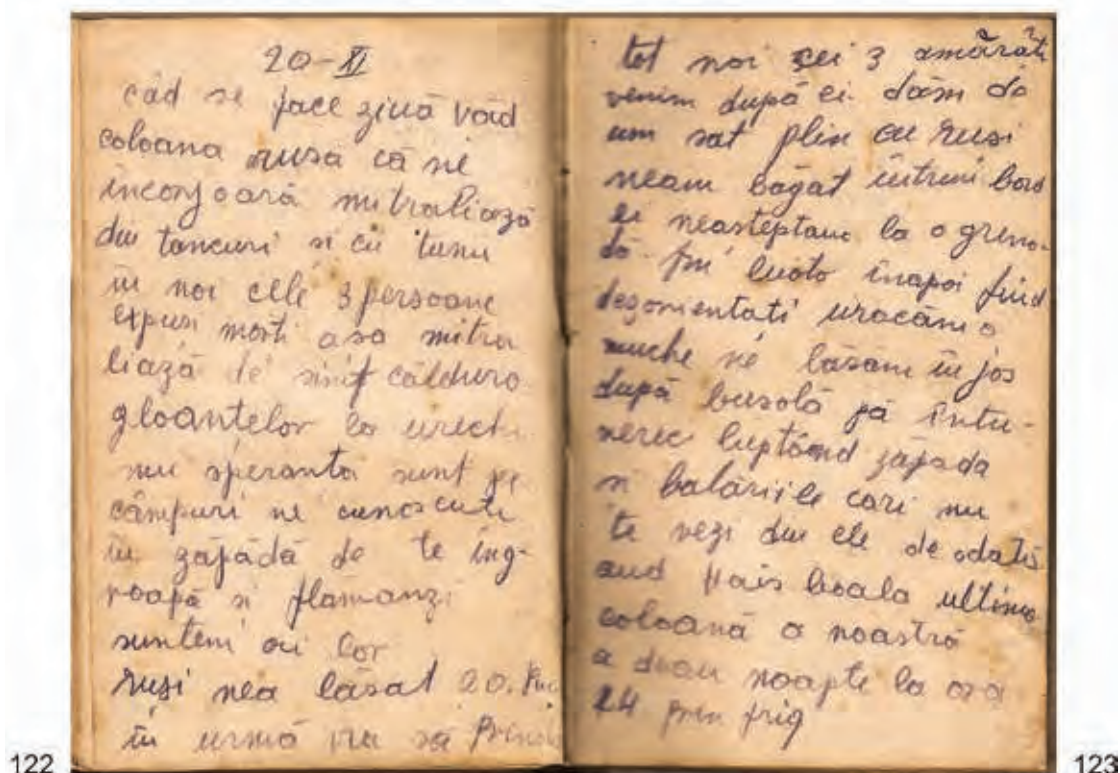 20-XI
căd se face ziuă văd
coloana rusa că ne
inconjoară mitraliază
din tancuri si cu tunu
in noi cele 3 persoane
expusi morti asa mitra
liază de simt căldura
gloantelor la urechi
nu speranta sunt pe
câmpuri ne cunoscute
in zăpădă de te ing-
roapă si flamanzi
suntem ai lor
ruși nea lăsat 20.
in urmă vra să
122
tot noi cei 3 amărâti
venim după ei dăm dă
um sat plin cu rusi
neam băgat intruni bord
ei neasteptau la o grena-
dă fui luoto inapoi fiind
dezorientati urocăm o
muche ne lăsam in jos
după busolă pă intu-
neric luptând zăpada
si balăriile cari nu
te vezi din ele de odată
aud boala ultima
coloană a noastră
a doau noapte la ora
24 prin frig
123